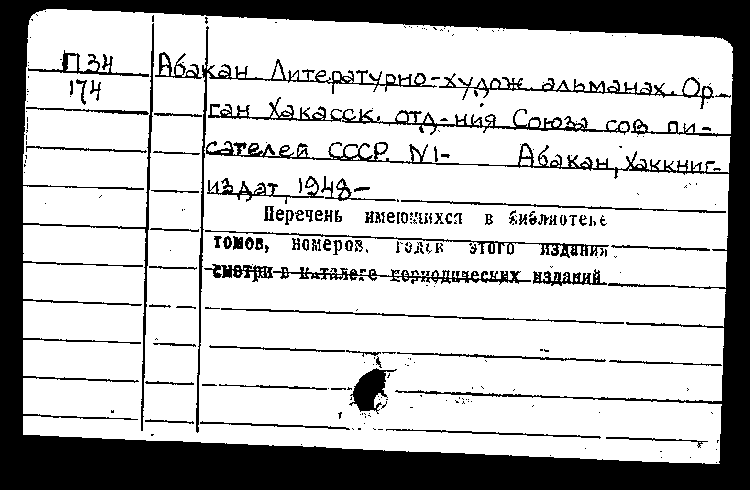 П34 Абакан Литературно-худож. альманах. Ор-
174 ган Хакасск. отд-ния Союза сов. пи-
сателей СССР. N1- Абакан, Хаккниг-
издат, 1948-
Перечень имеющихся в библиотеке
томов, номеров, годов этого издания
смотри в каталоге периодических изданий